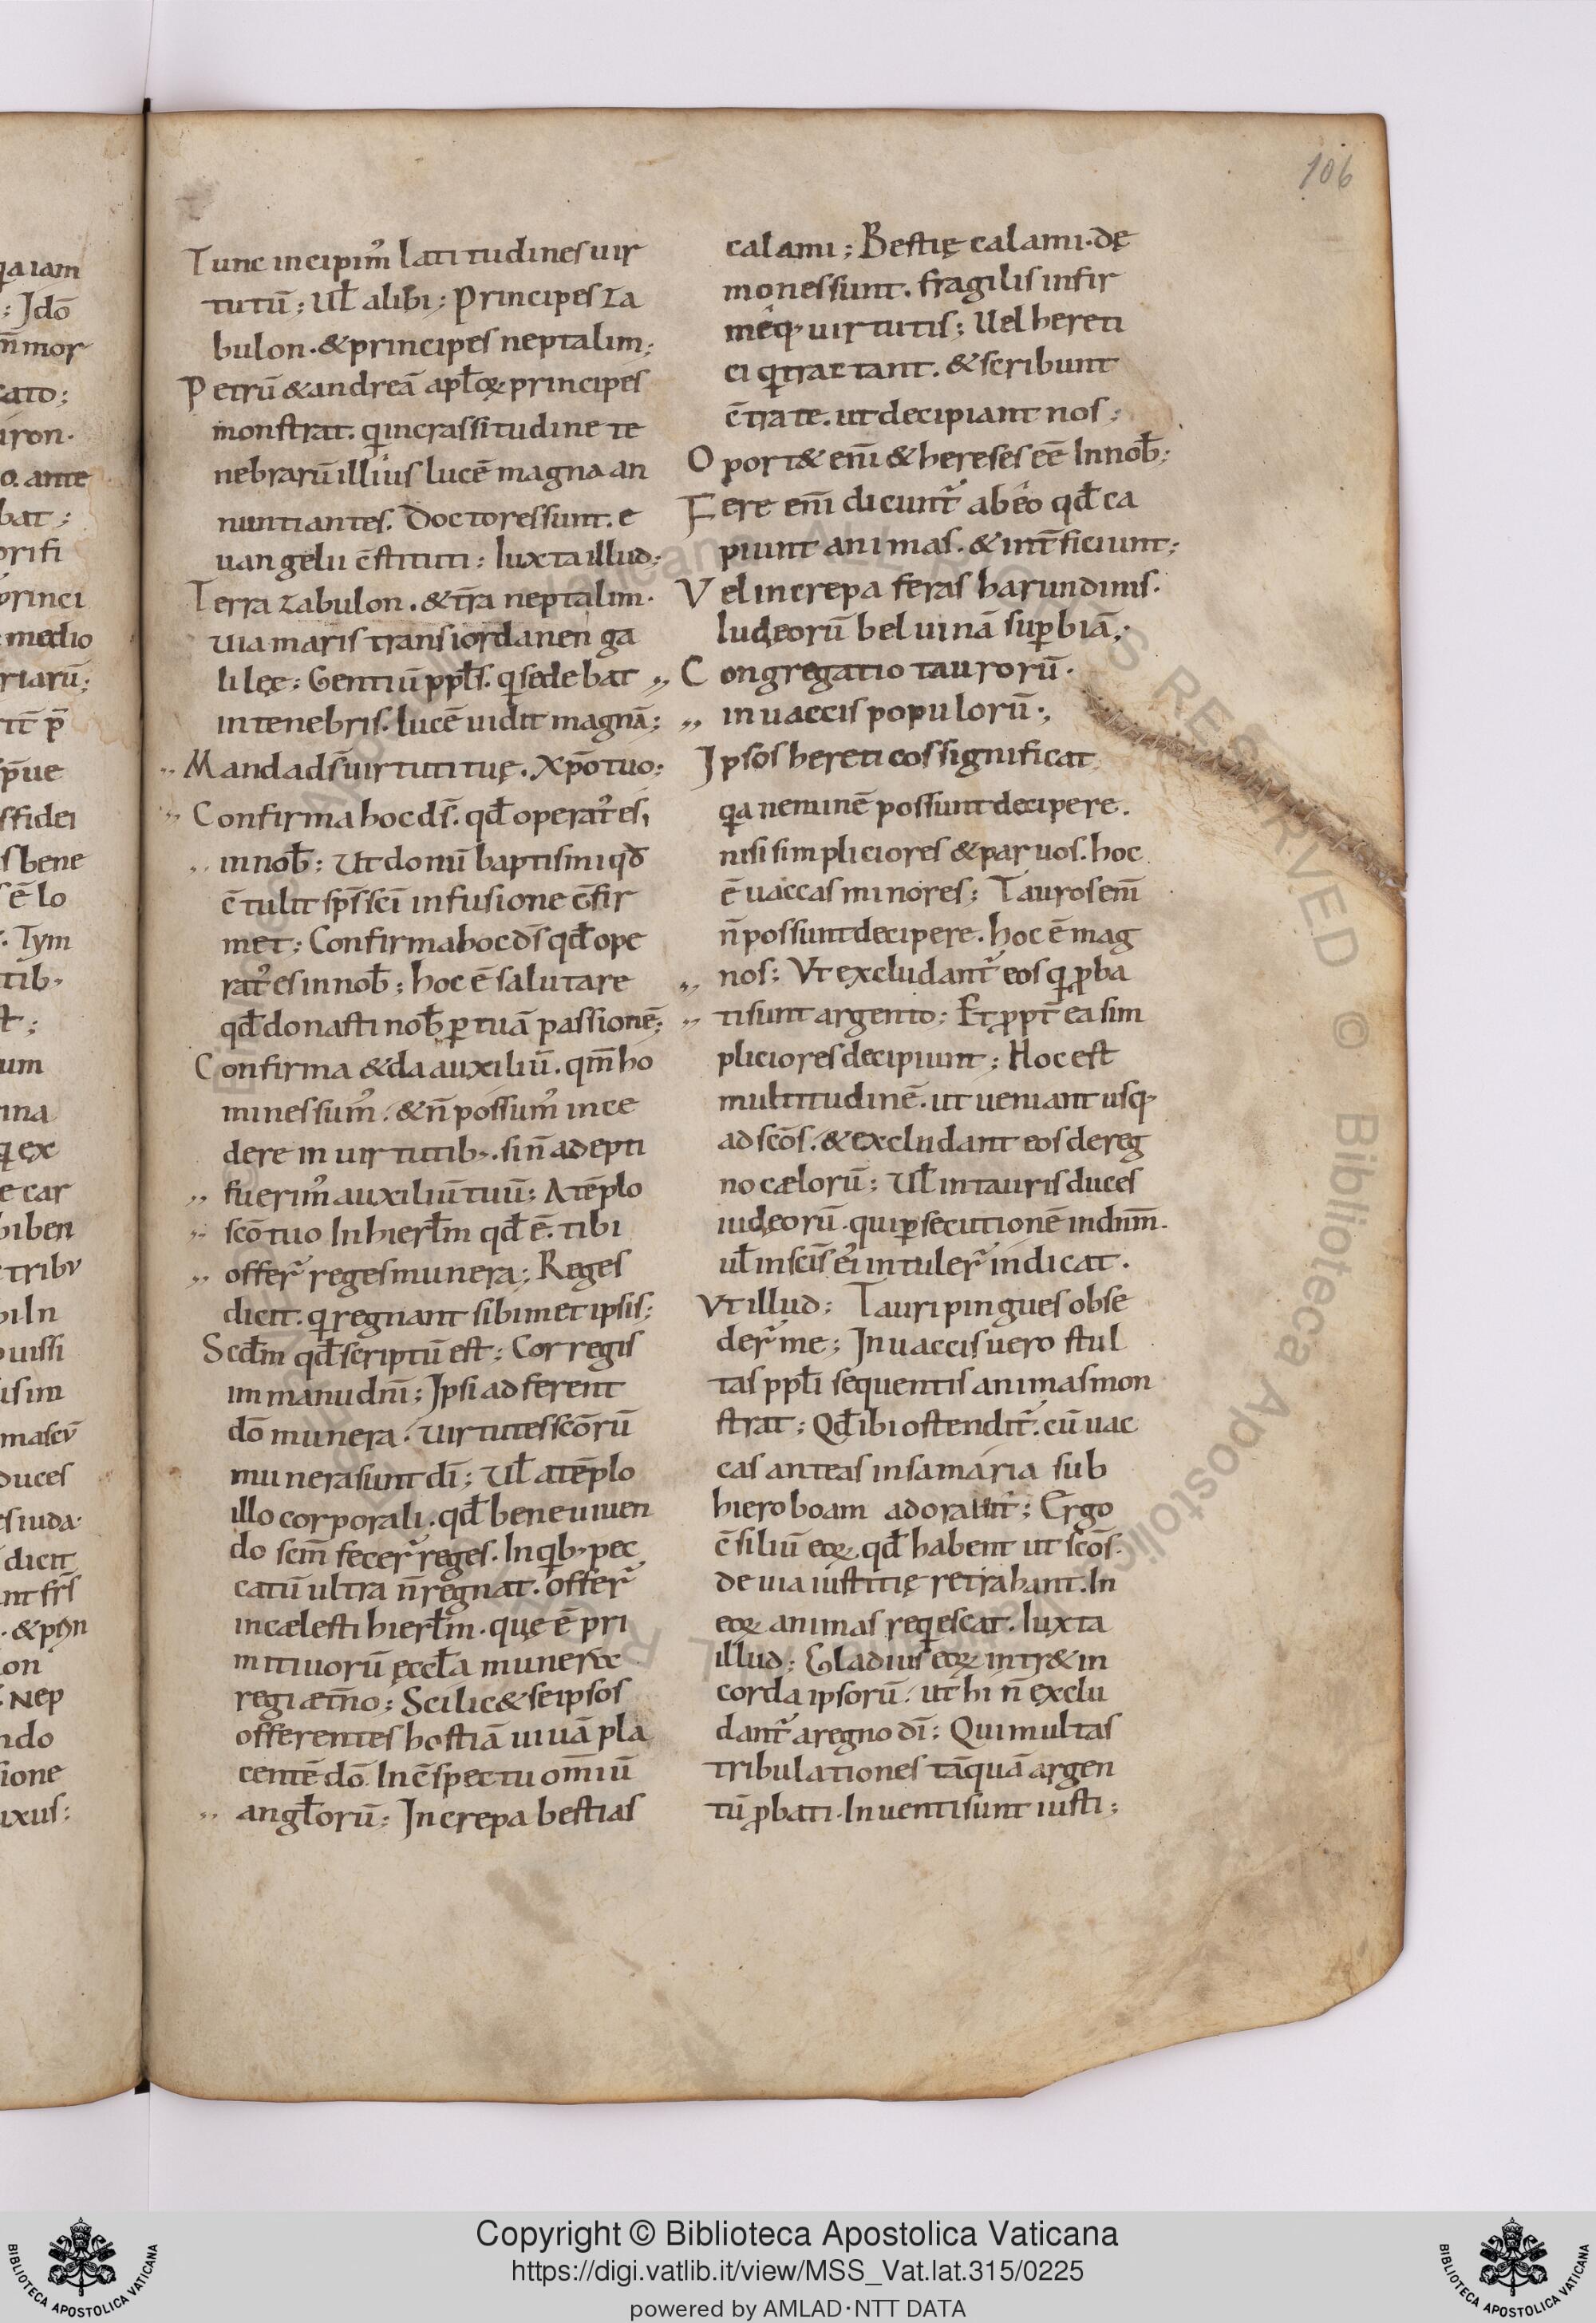 106
qa iam
; Jdō
n̄ mor
cato;
iron.
o. ante
bat;
orifi
princi
medio
riarū;
rit̄ p̄
sp̄ue
s fidei
s bene
s ē lo
. Tym
tib;
st;
um
nna
qi ex
e car
biben
tribu
bi In
uissi
usim
mascū
duces
es iuda.
dicit
nt fr̄s
. & pōn
ion
. Nep
ndo
sione
uxus;
Tunc incipim᾽ latitudines uir
tutū; Ul̄ alibi; Principes za
bulon. & principes neptalim;
Petrū & andreā apl̄oꝝ principes
monstrat. qi incrassitudine te
nebrarū illius lucē magna an
nuntiantes. Doctores sunt. e
uangelii c̄stituti; Iuxta illud;
Terra zabulon. & t̄ra neptalim.
uia maris trans iordanen ga
lileę; Gentiū ppl̄s. qi sedebat
in tenebris. lucē uidit magnā;
„ Manda ds̄ uirtuti tuę. Xp̄o tuo;
„ Confirma hoc ds̄. qd̄ operat᾽ es,
„ in nob̄; Ut donū baptismi qd̄
c̄tulit sp̄s sc̄i infusione c̄fir
met; Confirma hoc ds̄ qd̄ ope
rat᾽ es in nob̄; hoc ē salutare
qd̄ donasti nob̄ ꝑ tuā passionē;
Confirma & da auxiliū. qm̄ ho
mines sum᾽. & n̄ possum᾽ ince
dere in uirtutib;. si n̄ adepti
„ fuerim᾽ auxiliū tuū; A tēplo
„ sc̄o tuo In hierl̄m qd̄ ē. tibi
„ offer᾽ reges munera; Reges
dicit. qi regnant sibimet ipsis;
Scd̄m qd̄ scriptū est; Cor regis
im manu dn̄i; Ipsi adferent
dō munera. uirtutes sc̄orū
munera sunt dī; Ul̄ a tēplo
illo corporali. qd̄ bene uiuen
do sc̄m fecer᾽ reges. In qib; pec
catū ultra n̄ regnat. offer᾽
in cælesti hierl̄m. quę ē pri
mitiuorū ęccl̄a munera
regi æt̄no; Scilic& se ipsos
offerentes hostiā uiuā pla
centē dō. In c̄spectu om̄iū
„ angl̄orū; Increpa bestias
calami; Bestię calami. dę
mones sunt. fragilis infir
męq; uirtutis; Uel hereti
ci qi tractant. & scribunt
c̄tra te. ut decipiant nos;
Oport& eni̅ & hereses eē In nob̄;
Fere eni̅ dicunt᾽ ab eo qd̄ ca
piunt animas. & int̄ficiunt;
Vel increpa feras harundinis.
Iudęorū beluinā suꝑbiā;
„ Congregatio taurorū.
„ in uaccis populorū.,
Ipsos hereticos significat
qa neminē possunt decipere.
nisi simpliciores & paruos. hoc
ē uaccas minores; Tauros eni̅
n̄ possunt decipere. hoc ē mag
„ nos; Vt excludant᾽ eos qi ꝓba
„ ti sunt argento; Et ꝓpt̄ ea sim
pliciores decipiunt; Hoc est
multitudinē. ut ueniant usq;
ad sc̄os. & excludant eos de reg
no cælorū; Ul̄ in tauris duces
iudęorū. qui ꝑsecutionē in dn̄m.
ul̄ in sc̄is ei᾽ intuler᾽ indicat.
Vt illud; Tauri pingues obse
der᾽ me; In uaccis uero stul
tas ppl̄i sequentis animas mon
strat; Qd̄ ibi ostendit᾽. cū uac
cas anteas in samaria sub
hieroboam adorant; Ergo
c̄siliū eoꝝ. qd̄ habent ut sc̄os.
de uia iustitię retrahant. In
eoꝝ animas reqiescat. Iuxta
illud; Gladius eoꝝ intr& in
corda ipsorū. ut hi n̄ exclu
dant᾽ a regno dī; Qui multas
tribulationes tāquā argen
tū ꝓbati. Inuenti sunt iusti;
Copyright © Biblioteca Apostolica Vaticana
https://digi.vatlib.it/view/MSS_Vat.lat.315/0225
powered by AMLAD·NTT DATA
BIBLIOTECA APOSTOLICA VATICANA
BIBLIOTECA APOSTOLICA VATICANA